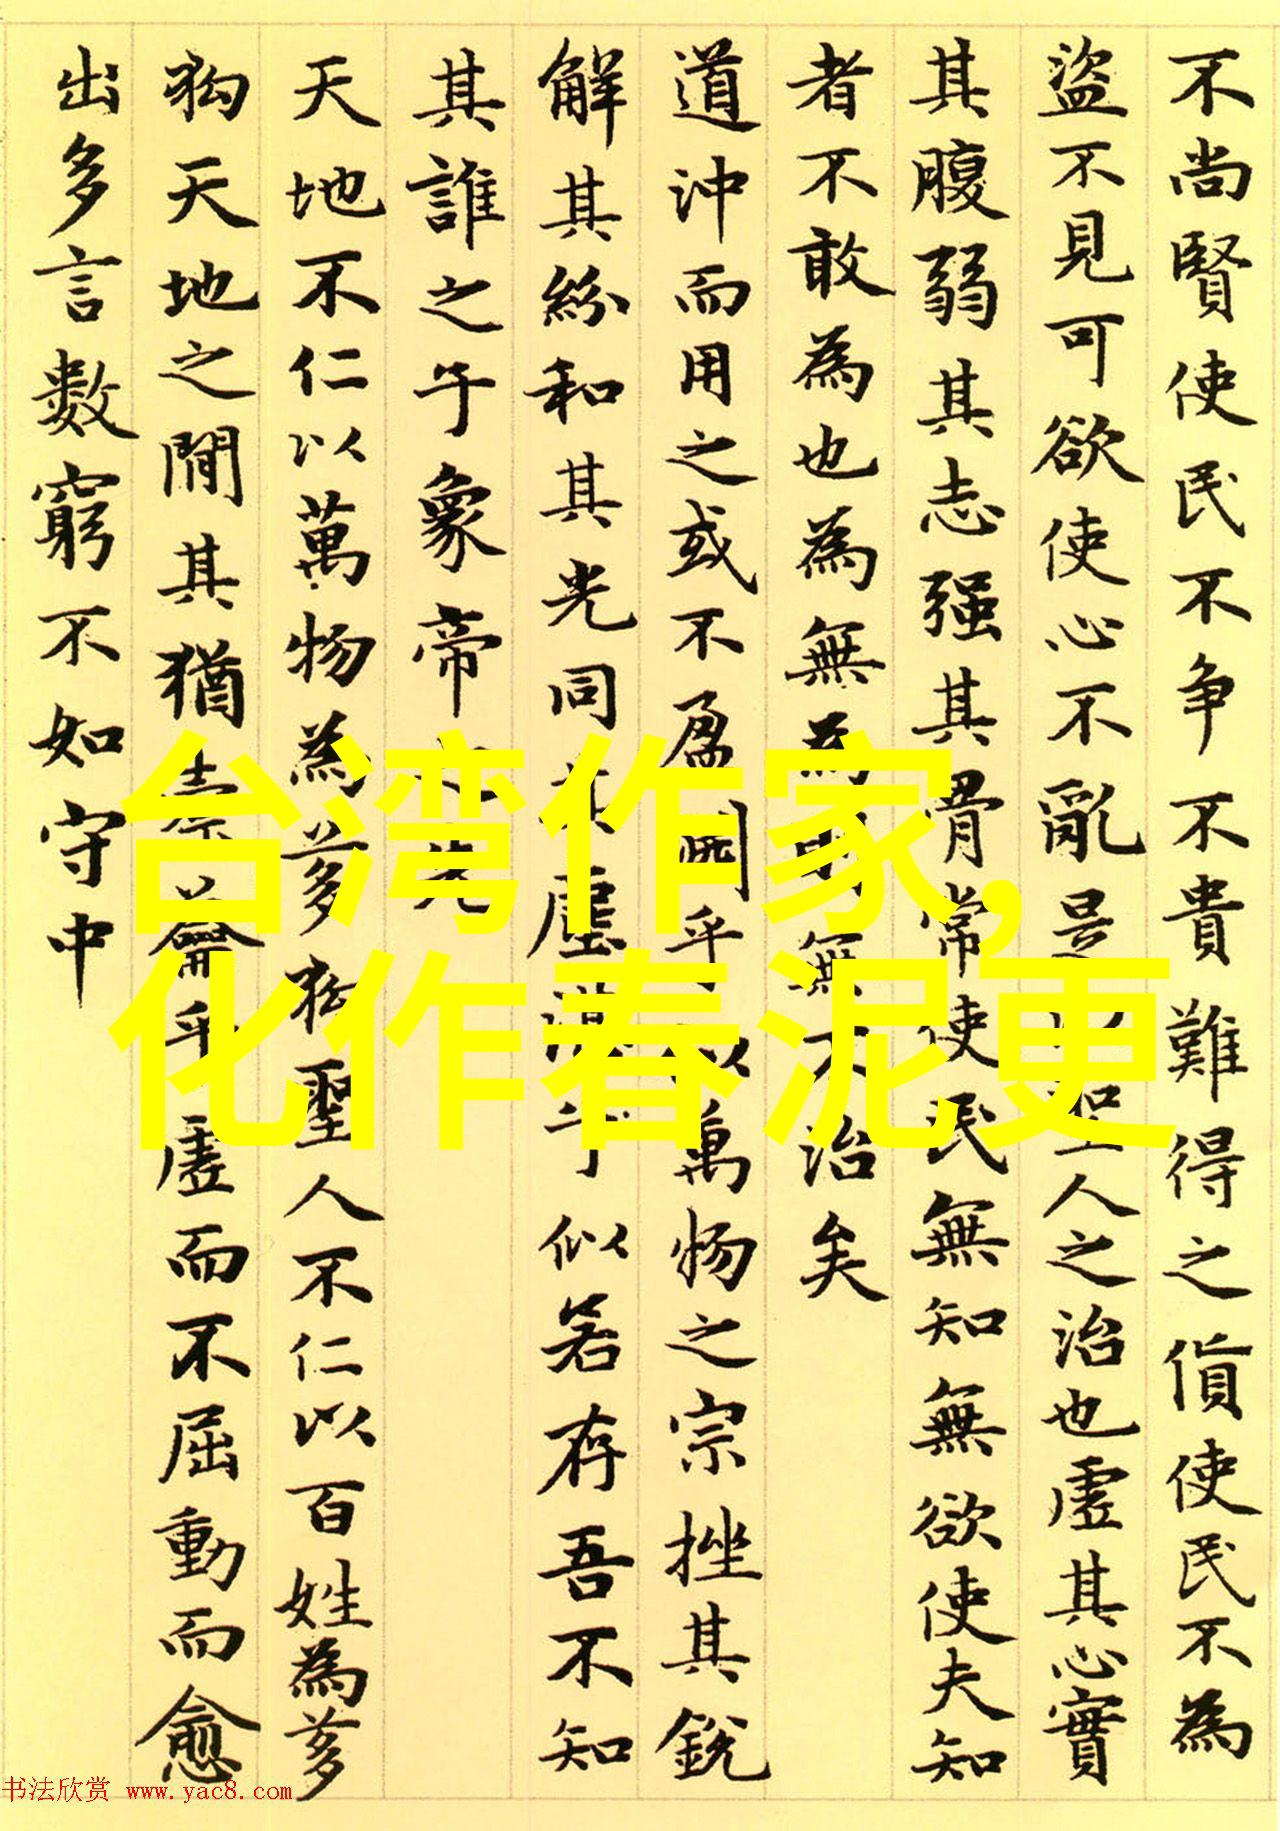 不尚賢使民不争不貴難得之貨使民不為
盜不見可欲使心不亂是以聖人之治也虛其心實
其腹弱其志强其骨常使民無知無欲使夫知
者不敢為也為無為則無不治矣
道沖而用之或不盈淵乎似萬物之宗挫其銳
解其紛和其光同其塵湛乎似若存吾不知
其誰之子象帝之先
天地不仁以萬物為芻狗聖人不仁以百姓為芻
狗天地之間其猶橐籥乎虛而不屈動而愈
出多言數窮不如守中
台湾作家,
化作春泥更
书法欣赏 www.yac8.com